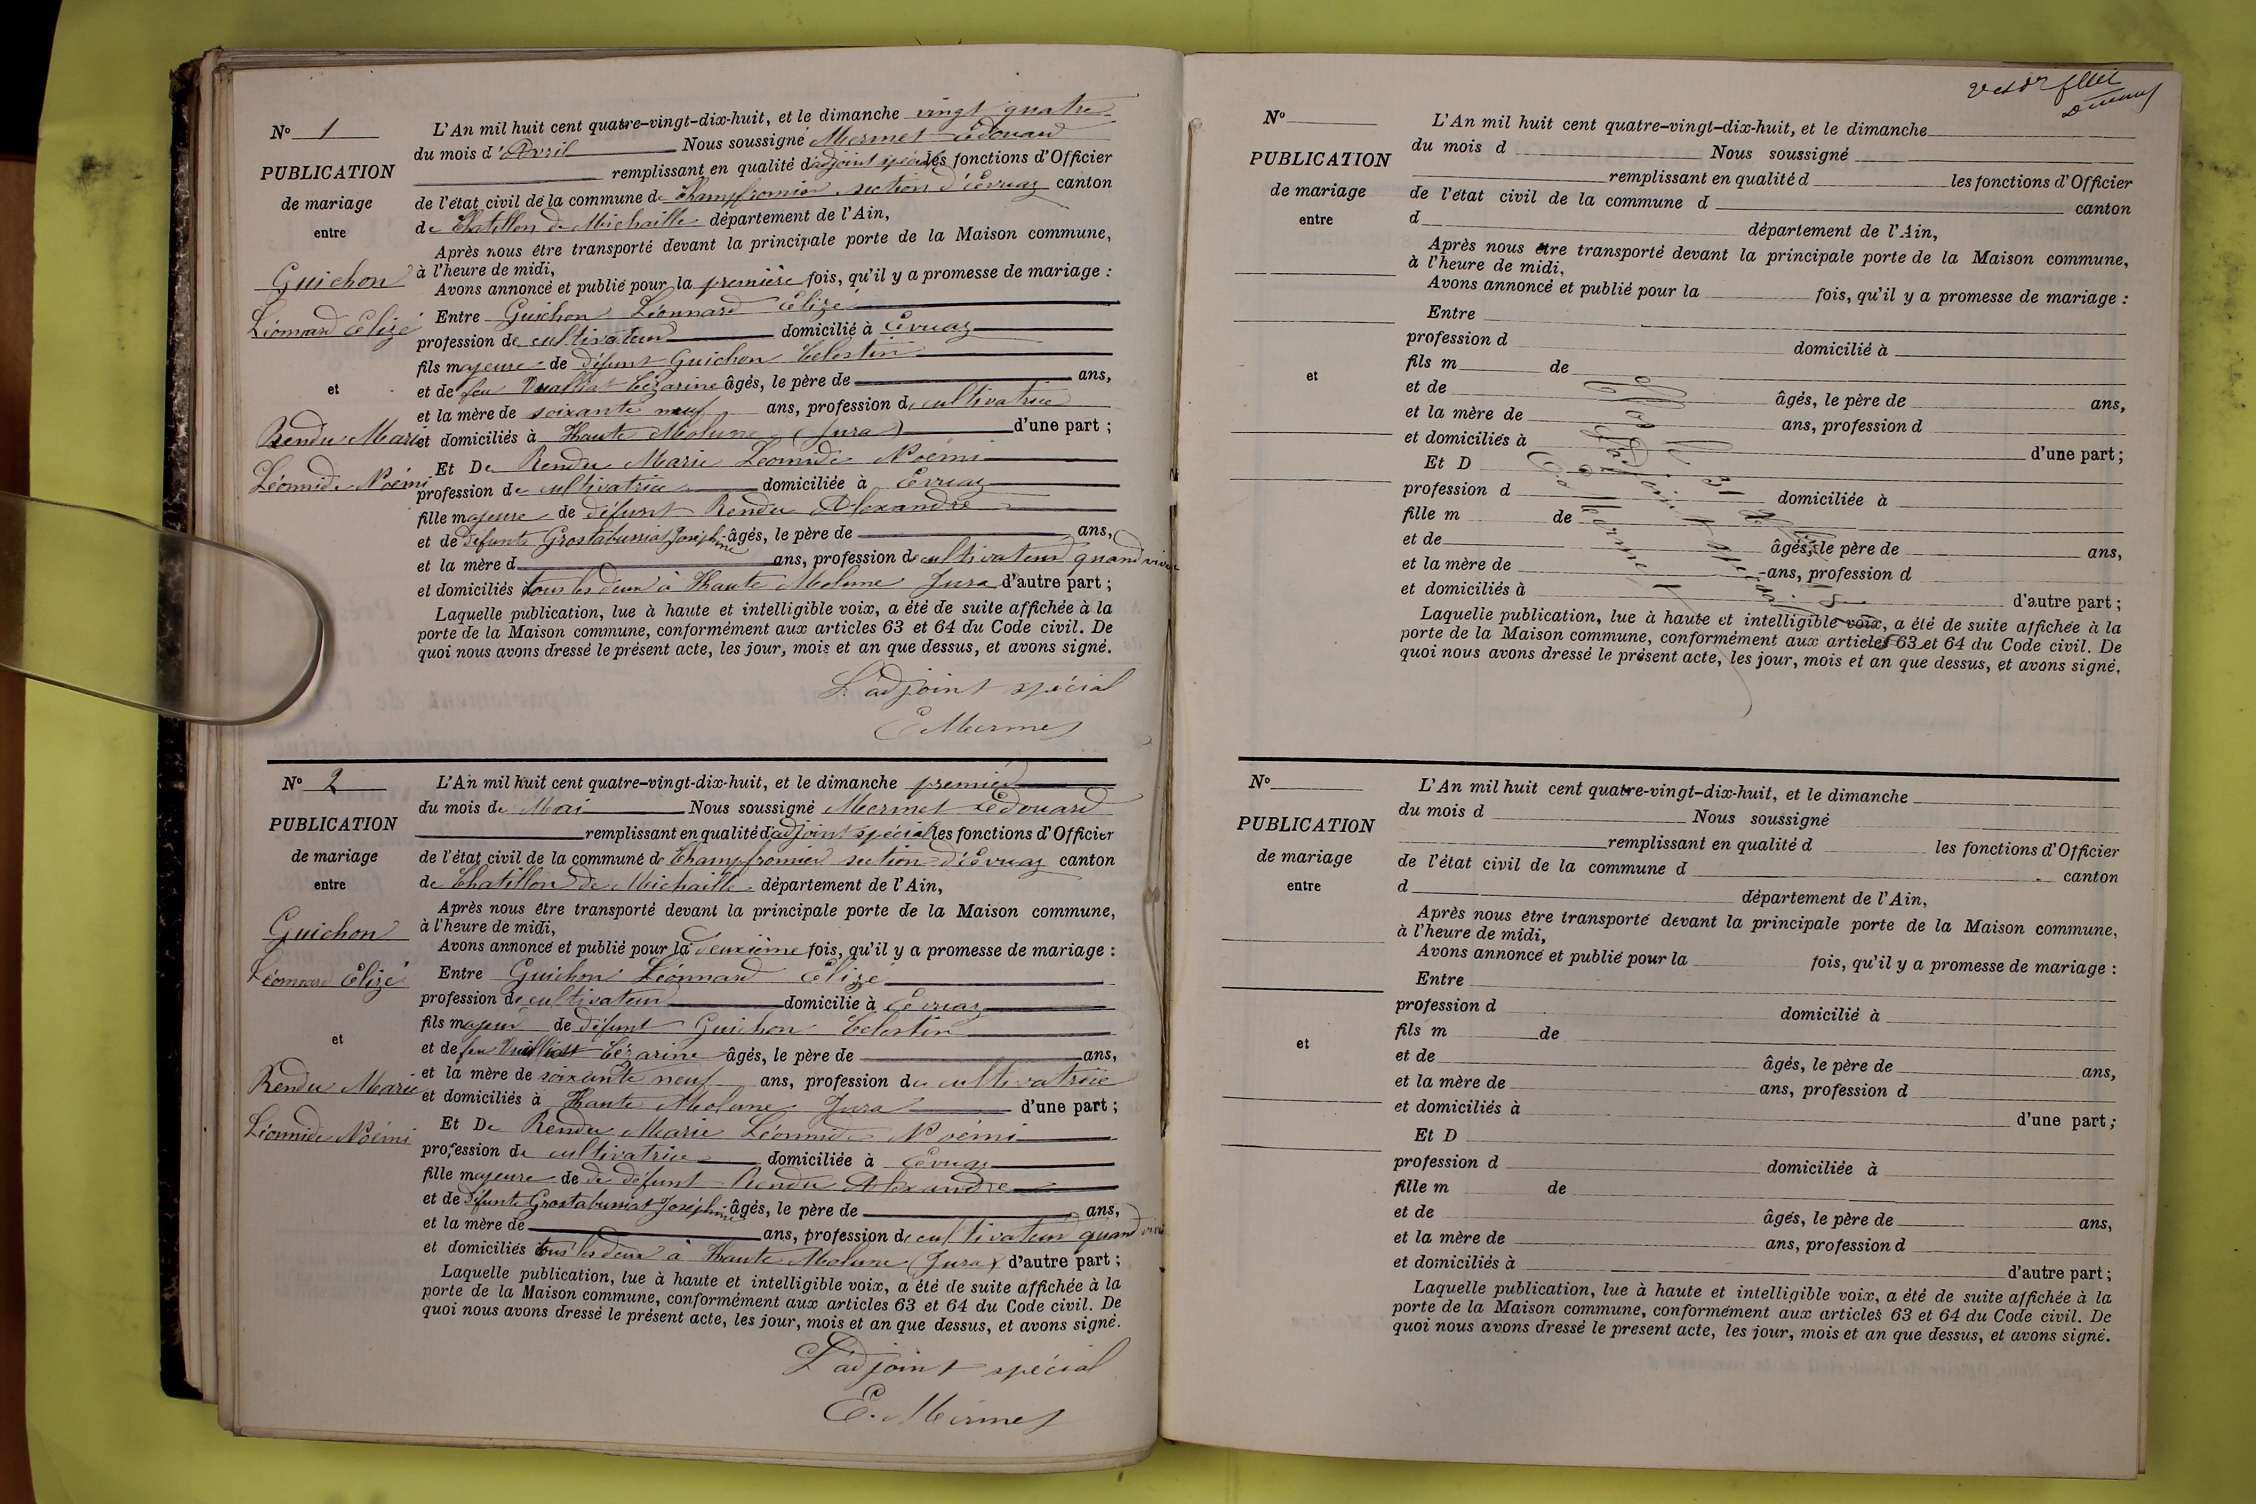 N° 1
PUBLICATION
de mariage
entre
Guichon
Léonnard Elizé
et
Rendu Marie
Léonnide Noémi
L'An mil huit cent quatre-vingt-dix-huit, et le dimanche vingt quatre
du mois d'Avril Nous soussigné Mermet Edouard
remplissant en qualité d'adjoint spécial les fonctions d'Officier
de l'état civil de la commune de Champfromier section d'Evuaz canton
de Chatillon de Michaille département de l'Ain,
Après nous être transporté devant la principale porte de la Maison commune,
à l'heure de midi,
Avons annoncé et publié pour la première fois, qu'il y a promesse de mariage :
Entre Guichon Léonnard Elizé
profession de cultivateur domicilié à Evuaz
fils majeure de défunt Guichon Celestin
et de feu Vuaillat Cézarine âgés, le père de ans,
et la mère de soixante neuf ans, profession de cultivatrice
et domiciliés à Haute Molune (Jura) d'une part ;
Et De Rendu Marie Léonnide Noémi
profession de cultivatrice domiciliée à Evuaz
fille majeure de défunt Rendu Alexandre
et de défunte Grostabussiat Joséphine âgés, le père de ans,
et la mère d ans, profession de cultivateur quand vivai
et domiciliés tous les deux à Haute Molune Jura d'autre part ;
Laquelle publication, lue à haute et intelligible voix, a été de suite affichée à la
porte de la Maison commune, conformément aux articles 63 et 64 du Code civil. De
quoi nous avons dressé le présent acte, les jour, mois et an que dessus, et avons signé.
L'adjoint spécial
E Mermet
N° 2
PUBLICATION
de mariage
entre
Guichon
Léonnard Elizé
et
Rendu Marie
Léonnide Noémi
L'An mil huit cent quatre-vingt-dix-huit, et le dimanche premier
du mois de Mai Nous soussigné Mermet Edouard
remplissant en qualité d'adjoint spécial les fonctions d'Officier
de l'état civil de la commune de Champfromier section d'Evuaz canton
de Chatillon de Michaille département de l'Ain,
Après nous être transporté devant la principale porte de la Maison commune,
à l'heure de midi,
Avons annoncé et publié pour la deuxième fois, qu'il y a promesse de mariage :
Entre Guichon Léonnard Elizé
profession de cultivateur domicilié à Evuaz
fils majeur de défunt Guichon Celestin
et de feu Vuaillat Cézarine âgés, le père de ans,
et la mère de soixante neuf ans, profession de cultivatrice
et domiciliés à Haute Molune Jura d'une part ;
Et De Rendu Marie Léonnide Noémi
profession de cultivatrice domiciliée à Evuaz
fille majeure de de défunt Rendu Alexandre
et de défunte Grostabussiat Joséphine âgés, le père de ans,
et la mère de ans, profession de cultivateur quand vivai
et domiciliés tous les deux à Haute Molune (Jura) d'autre part ;
Laquelle publication, lue à haute et intelligible voix, a été de suite affichée à la
porte de la Maison commune, conformément aux articles 63 et 64 du Code civil. De
quoi nous avons dressé le présent acte, les jour, mois et an que dessus, et avons signé.
L'adjoint spécial
E. Mermet
N°
PUBLICATION
de mariage
entre
et
L'An mil huit cent quatre-vingt-dix-huit, et le dimanche
du mois d Nous soussigné
remplissant en qualité d les fonctions d'Officier
de l'état civil de la commune d canton
d département de l'Ain,
Après nous être transporté devant la principale porte de la Maison commune,
à l'heure de midi,
Avons annoncé et publié pour la fois, qu'il y a promesse de mariage :
Entre
profession d domicilié à
fils m de
et de âgés, le père de ans,
et la mère de ans, profession d
et domiciliés à d'une part ;
Et D
profession d domiciliée à
fille m de
et de âgés, le père de ans,
et la mère de ans, profession d
et domiciliés à d'autre part ;
Laquelle publication, lue à haute et intelligible voix, a été de suite affichée à la
porte de la Maison commune, conformément aux articles 63 et 64 du Code civil. De
quoi nous avons dressé le présent acte, les jour, mois et an que dessus, et avons signé.
Clos le 31
L'adjoint spécial
Ed Mermet
N°
PUBLICATION
de mariage
entre
et
L'An mil huit cent quatre-vingt-dix-huit, et le dimanche
du mois d Nous soussigné
remplissant en qualité d les fonctions d'Officier
de l'état civil de la commune d canton
d département de l'Ain,
Après nous être transporté devant la principale porte de la Maison commune,
à l'heure de midi,
Avons annoncé et publié pour la fois, qu'il y a promesse de mariage :
Entre
profession d domicilié à
fils m de
et de âgés, le père de ans,
et la mère de ans, profession d
et domiciliés à d'une part ;
Et D
profession d domiciliée à
fille m de
et de âgés, le père de ans,
et la mère de ans, profession d
et domiciliés à d'autre part ;
Laquelle publication, lue à haute et intelligible voix, a été de suite affichée à la
porte de la Maison commune, conformément aux articles 63 et 64 du Code civil. De
quoi nous avons dressé le présent acte, les jour, mois et an que dessus, et avons signé.